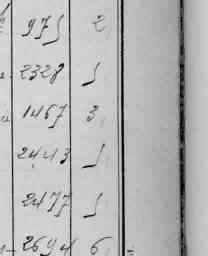 975 2
2328 5
1467 3
2443 5
2477 5
2694 6